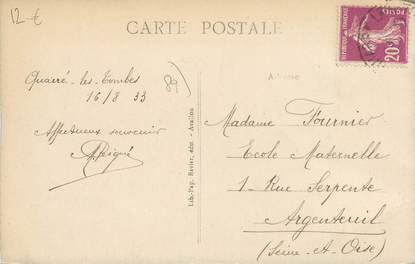 12 €
CARTE POSTALE
RÉPUBLIQUE FRANÇAISE
POSTES
20c
89
Quarré-les-Tombes
16/8 33
Affectueux souvenir
Lib.-Pap. Barier, édit. - Avallon
Madame Fournier
Ecole Maternelle
1 - Rue Serpente
Argenteuil
(Seine-A-Oise)